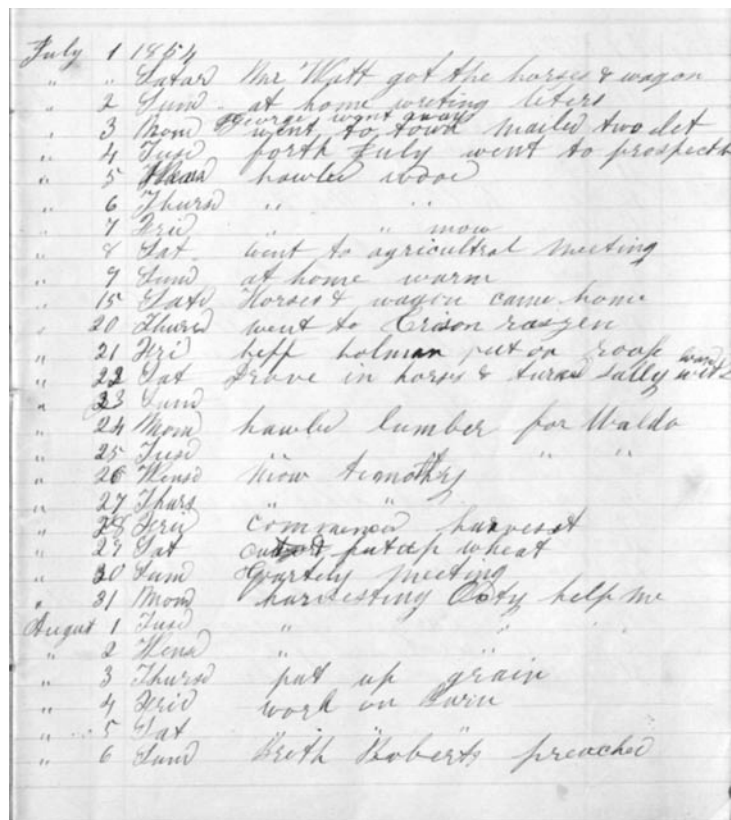 July 1 1854
" " Satar Mr Watt got the horses & wagon
" 2 Sund at home writing leters
George went away
" 3 Mond went to town mailed two let
" 4 Tusd forth July went to prospect
" 5 hawled wood
" 6 Thursd " "
" 7 Frid " " mow
" 8 Sat went to agricultral meeting
" 9 Sund at home warm
" 15 Satd Horses & wagon came home
" 20 Thursd went to
" 21 Fri holman put on roof
" 22 Sat Drove in horses & Sally
" 23 Sund
" 24 Mond hawled lumber for Waldo
" 25 Tusd " " "
" 26 Wensd Mow timothy
" 27 Thurs " "
" 28 Frid commenced harvesst
" 29 Sat put up wheat
" 30 Sund Quartely meeting
" 31 Mond harvesting help me
August 1 Tusd " "
" 2 Wensd " "
" 3 Thursd put up grain
" 4 Frid work on
" 5 Sat " "
" 6 Sund Roberts preached